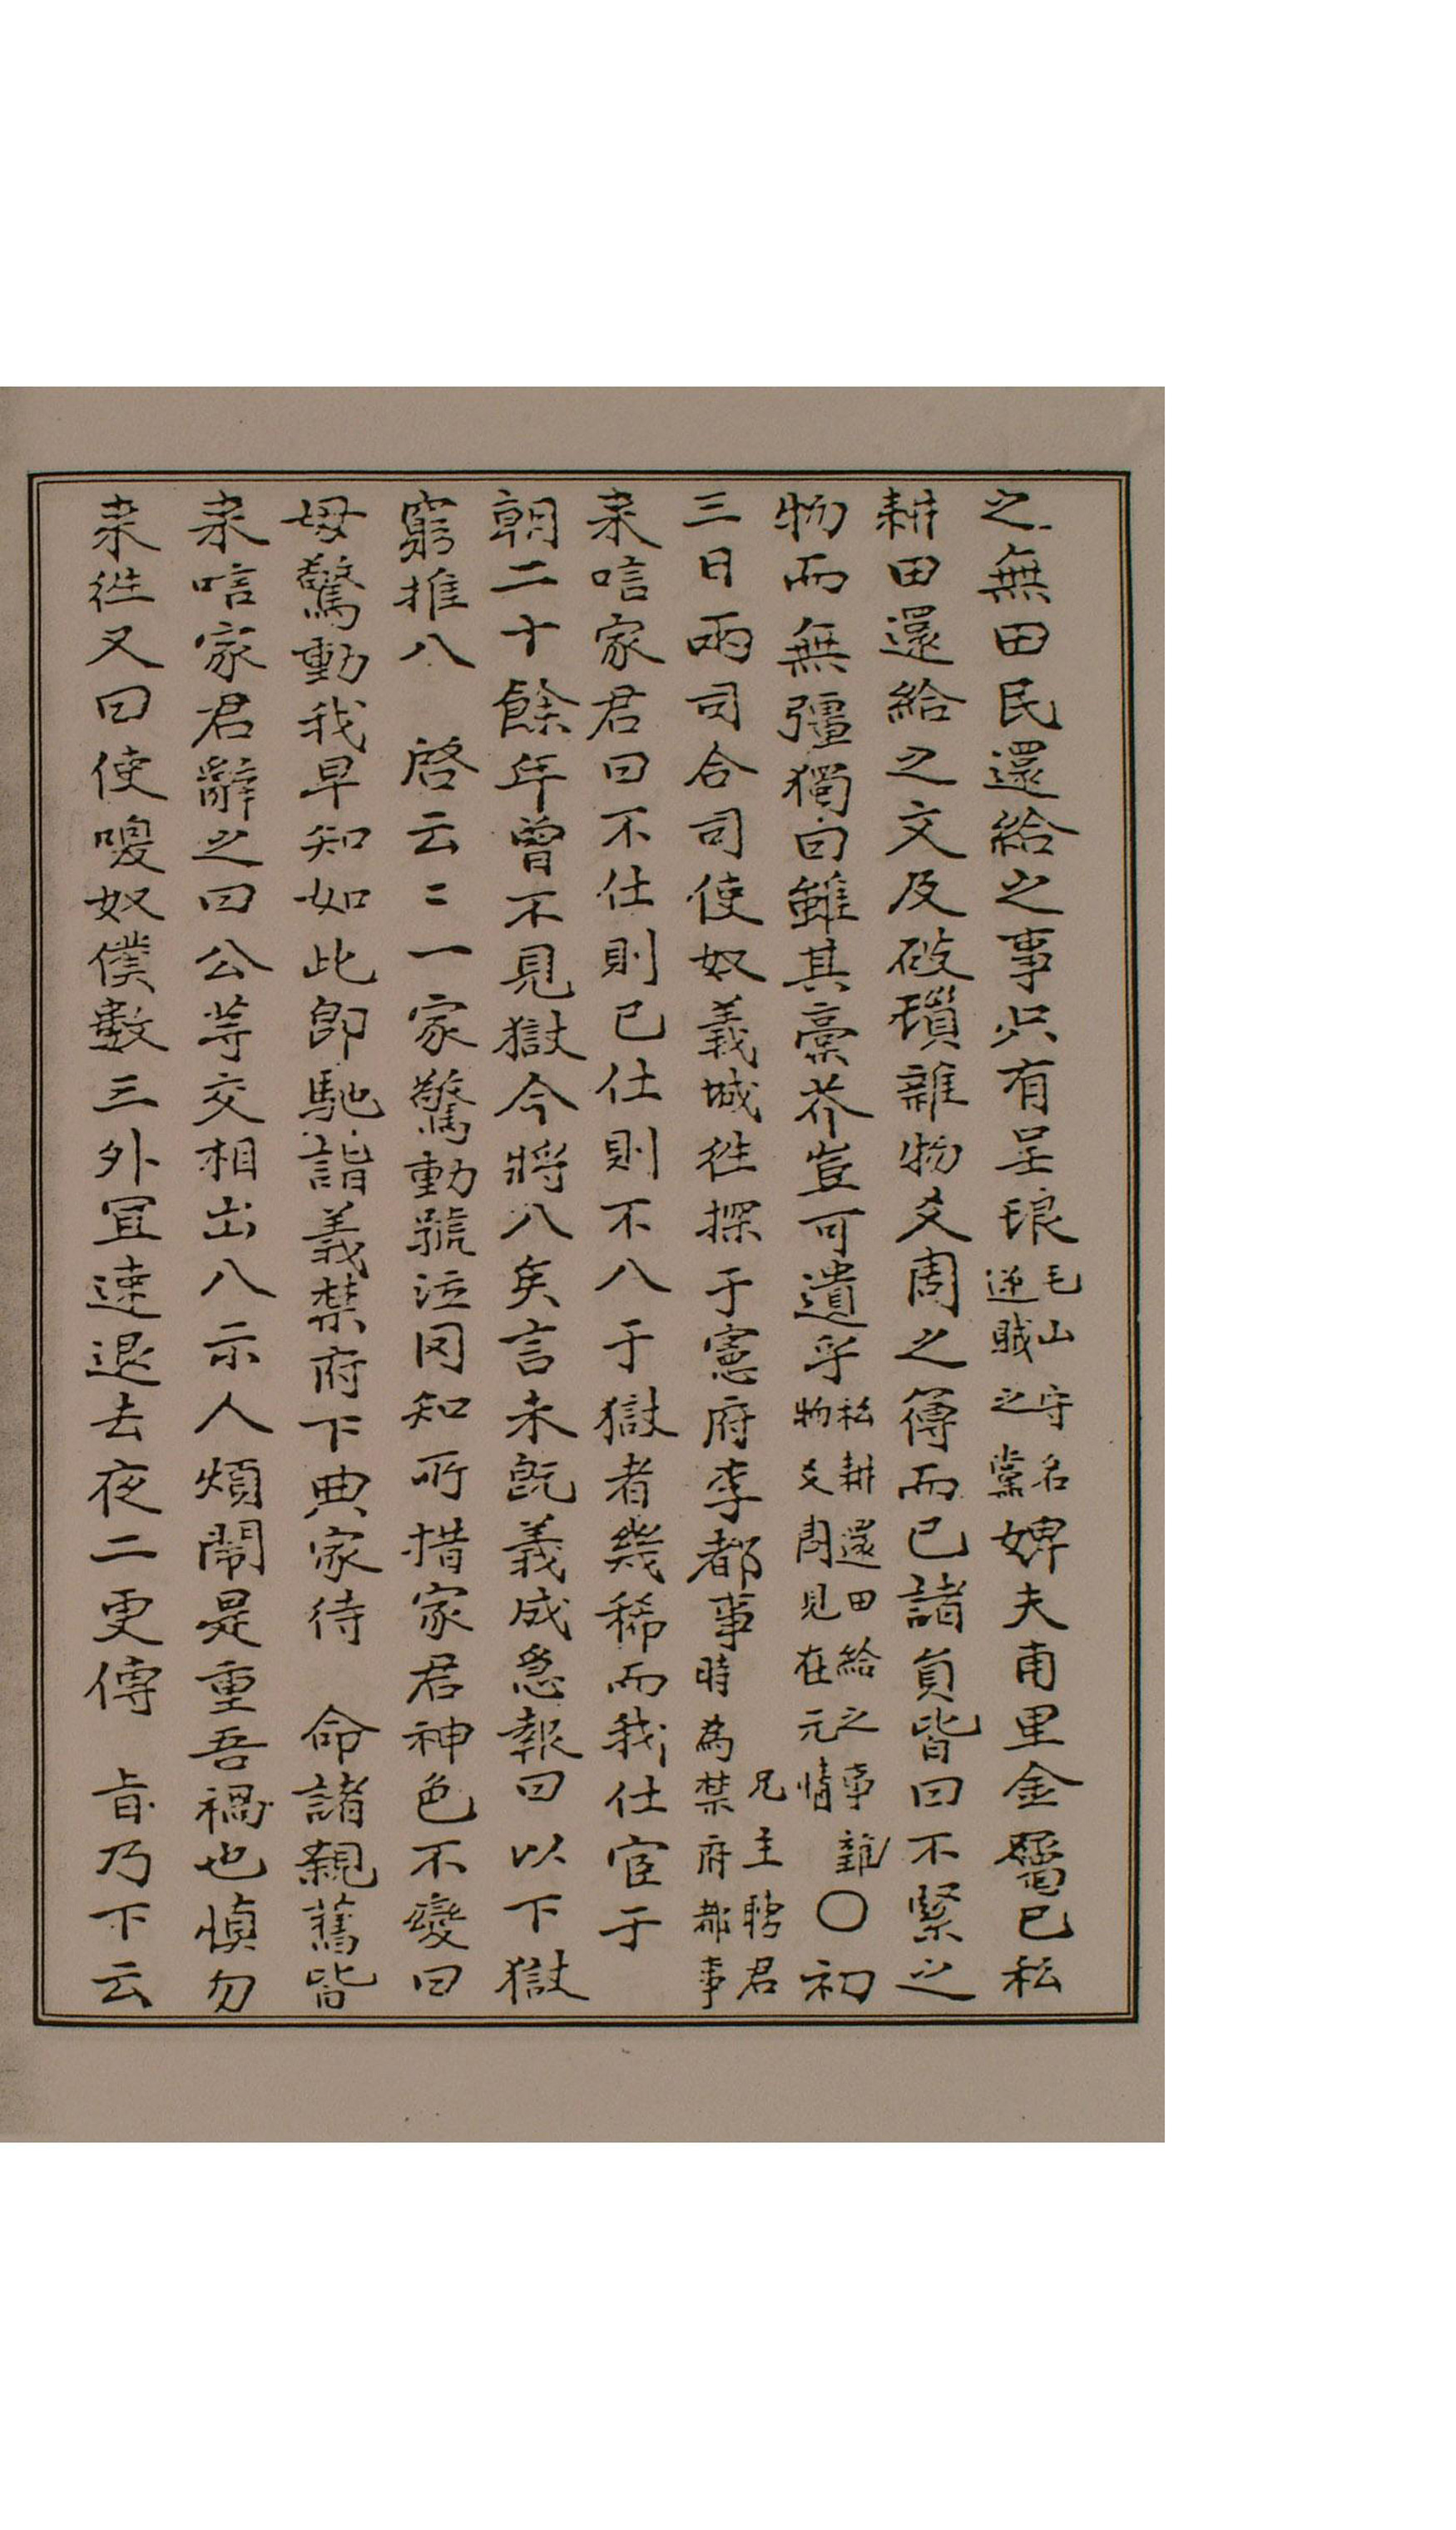 之無田民還給之事只有呈琅毛山守名逆賊之黨婢夫甫里金曆已私
耕田還給之文及破瑣雜物爻周之傳而已諸員皆曰不緊之
物而無彊獨曰雖其藁芥豈可遺乎私耕還田給之事雜物爻周見在元情〇初
三日兩司合司使奴義城徃探于憲府李都事兄主聘君時為禁府都事
来唁家君曰不仕則已仕則不八于獄者幾稀而我仕宦于
朝二十餘年曾不見獄今將八矣言未旣義成急報曰以下獄
窮推八 啓云〻一家驚動號泣罔知所措家君神色不變曰
毋驚動我早知如此卽馳詣義禁府下典家待 命諸親舊皆
来唁家君辭之曰公等交相出八示人煩鬧是重吾禍也愼勿
来徃又曰使喚奴僕數三外冝速退去夜二更傳 旨乃下云